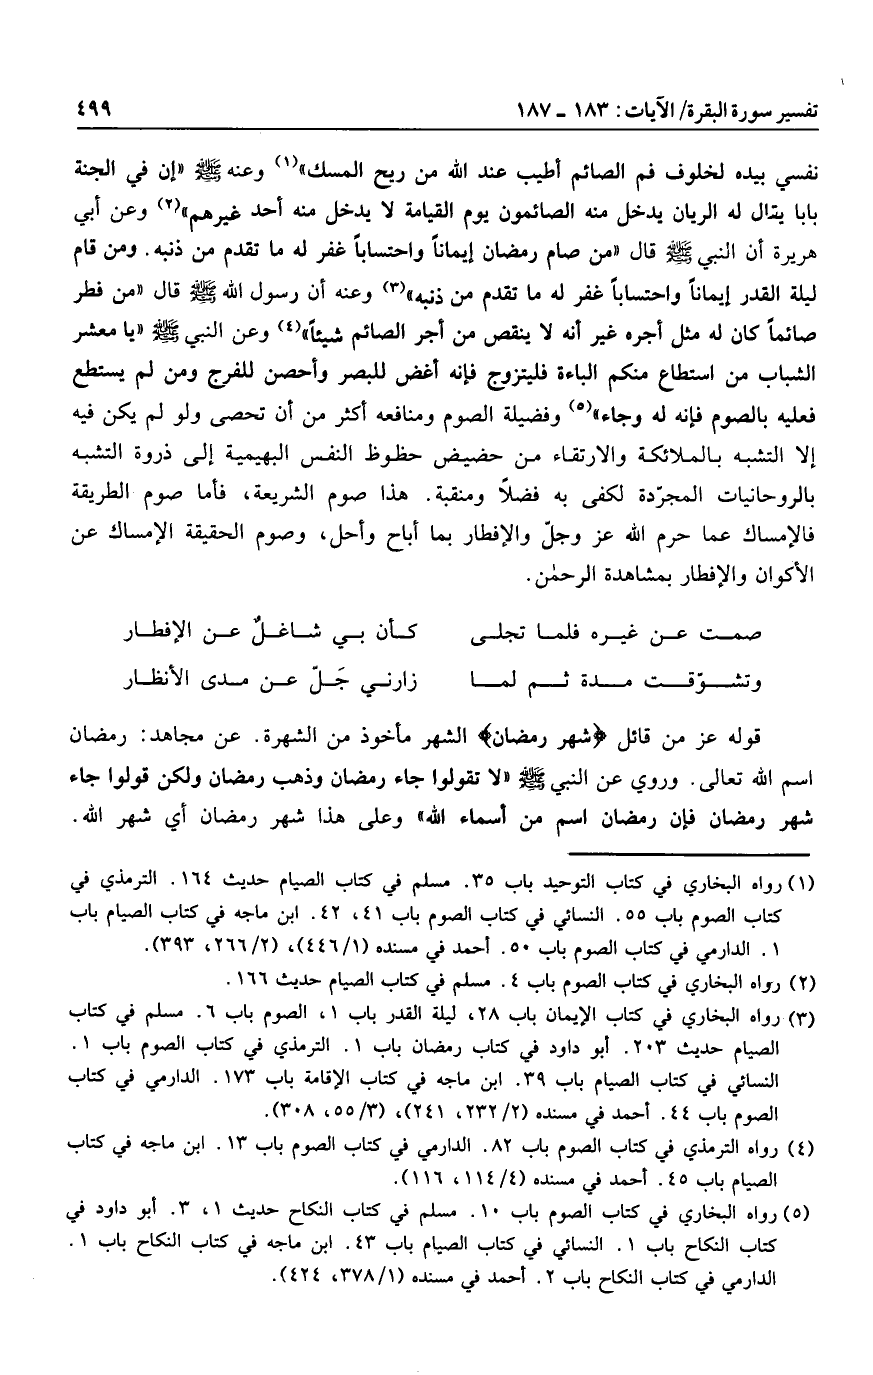 تفسير سورة البقرة/ الآيات: ١٨٣ ـ ١٨٧
٤٩٩
نفسي بيده لخلوف فم الصائم أطيب عند الله من ريح المسك»(١) وعنه ﷺ «إن في الجنة
بابا يقال له الريان يدخل منه الصائمون يوم القيامة لا يدخل منه أحد غيرهم»(٢) وعن أبي
هريرة أن النبي ﷺ قال «من صام رمضان إيماناً واحتساباً غفر له ما تقدم من ذنبه. ومن قام
ليلة القدر إيماناً واحتساباً غفر له ما تقدم من ذنبه»(٣) وعنه أن رسول الله ﷺ قال «من فطر
صائماً كان له مثل أجره غير أنه لا ينقص من أجر الصائم شيئاً»(٤) وعن النبي ﷺ «يا معشر
الشباب من استطاع منكم الباءة فليتزوج فإنه أغض للبصر وأحصن للفرج ومن لم يستطع
فعليه بالصوم فإنه له وجاء»(٥) وفضيلة الصوم ومنافعه أكثر من أن تحصى ولو لم يكن فيه
إلا التشبه بالملائكة والارتقاء من حضيض حظوظ النفس البهيمية إلى ذروة التشبه
بالروحانيات المجرّدة لكفى به فضلاً ومنقبة. هذا صوم الشريعة، فأما صوم الطريقة
فالإمساك عما حرم الله عز وجلّ والإفطار بما أباح وأحل، وصوم الحقيقة الإمساك عن
الأكوان والإفطار بمشاهدة الرحمٰن.
صمت عن غيره فلما تجلى كأن بي شاغلٌ عن الإفطار
وتشوّقت مدة ثم لما زارني جَلّ عن مدى الأنظار
قوله عز من قائل ﴿شهر رمضان﴾ الشهر مأخوذ من الشهرة. عن مجاهد: رمضان
اسم الله تعالى. وروي عن النبي ﷺ «لا تقولوا جاء رمضان وذهب رمضان ولكن قولوا جاء
شهر رمضان فإن رمضان اسم من أسماء الله» وعلى هذا شهر رمضان أي شهر الله.
(١) رواه البخاري في كتاب التوحيد باب ٣٥. مسلم في كتاب الصيام حديث ١٦٤. الترمذي في
كتاب الصوم باب ٥٥. النسائي في كتاب الصوم باب ٤١، ٤٢. ابن ماجه في كتاب الصيام باب
١. الدارمي في كتاب الصوم باب ٥٠. أحمد في مسنده (٤٤٦/١)، (٢٦٦/٢، ٣٩٣).
(٢) رواه البخاري في كتاب الصوم باب ٤. مسلم في كتاب الصيام حديث ١٦٦.
(٣) رواه البخاري في كتاب الإيمان باب ٢٨، ليلة القدر باب ١، الصوم باب ٦. مسلم في كتاب
الصيام حديث ٢٠٣. أبو داود في كتاب رمضان باب ١. الترمذي في كتاب الصوم باب ١.
النسائي في كتاب الصيام باب ٣٩. ابن ماجه في كتاب الإقامة باب ١٧٣. الدارمي في كتاب
الصوم باب ٤٤. أحمد في مسنده (٢٣٢/٢، ٢٤١)، (٥٥/٣، ٣٠٨).
(٤) رواه الترمذي في كتاب الصوم باب ٨٢. الدارمي في كتاب الصوم باب ١٣. ابن ماجه في كتاب
الصيام باب ٤٥. أحمد في مسنده (١١٤/٤، ١١٦).
(٥) رواه البخاري في كتاب الصوم باب ١٠. مسلم في كتاب النكاح حديث ١، ٣. أبو داود في
كتاب النكاح باب ١. النسائي في كتاب الصيام باب ٤٣. ابن ماجه في كتاب النكاح باب ١.
الدارمي في كتاب النكاح باب ٢. أحمد في مسنده (٣٧٨/١، ٤٢٤).